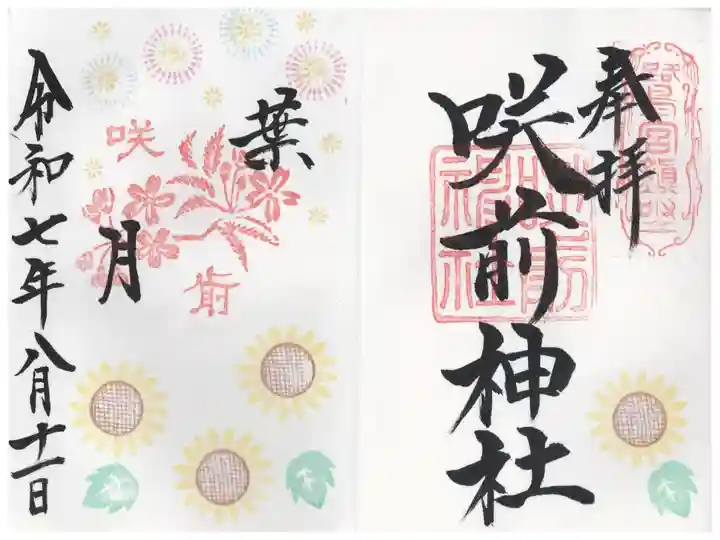 奉拝
咲前神社
鷺宮鎮座
咲前神社
葉月
咲前
令和七年八月十一日